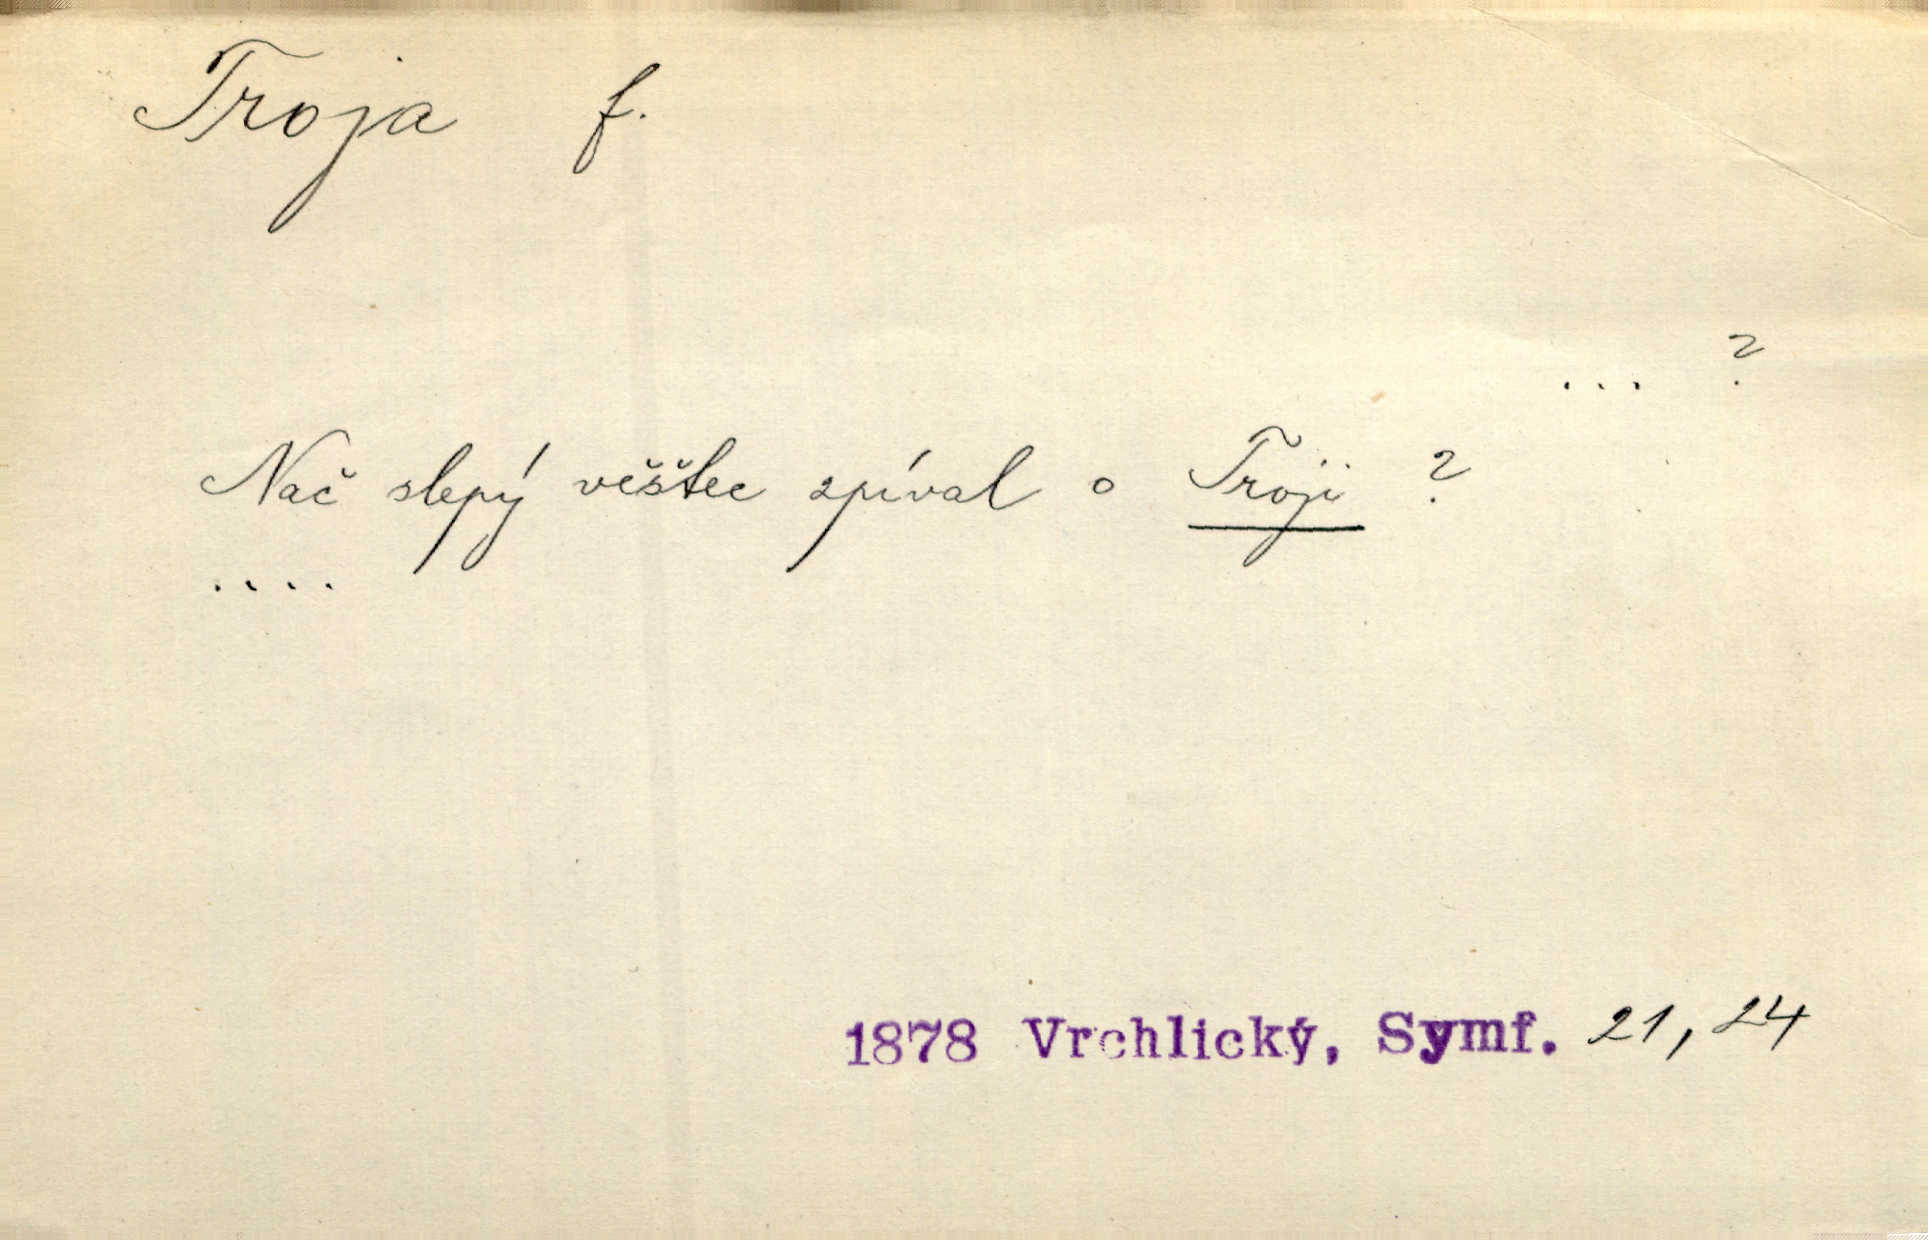 Troja f.
... ?
Nač slepý věštec zpíval o Troji ?
....
1878 Vrchlický, Symf. 21, 24